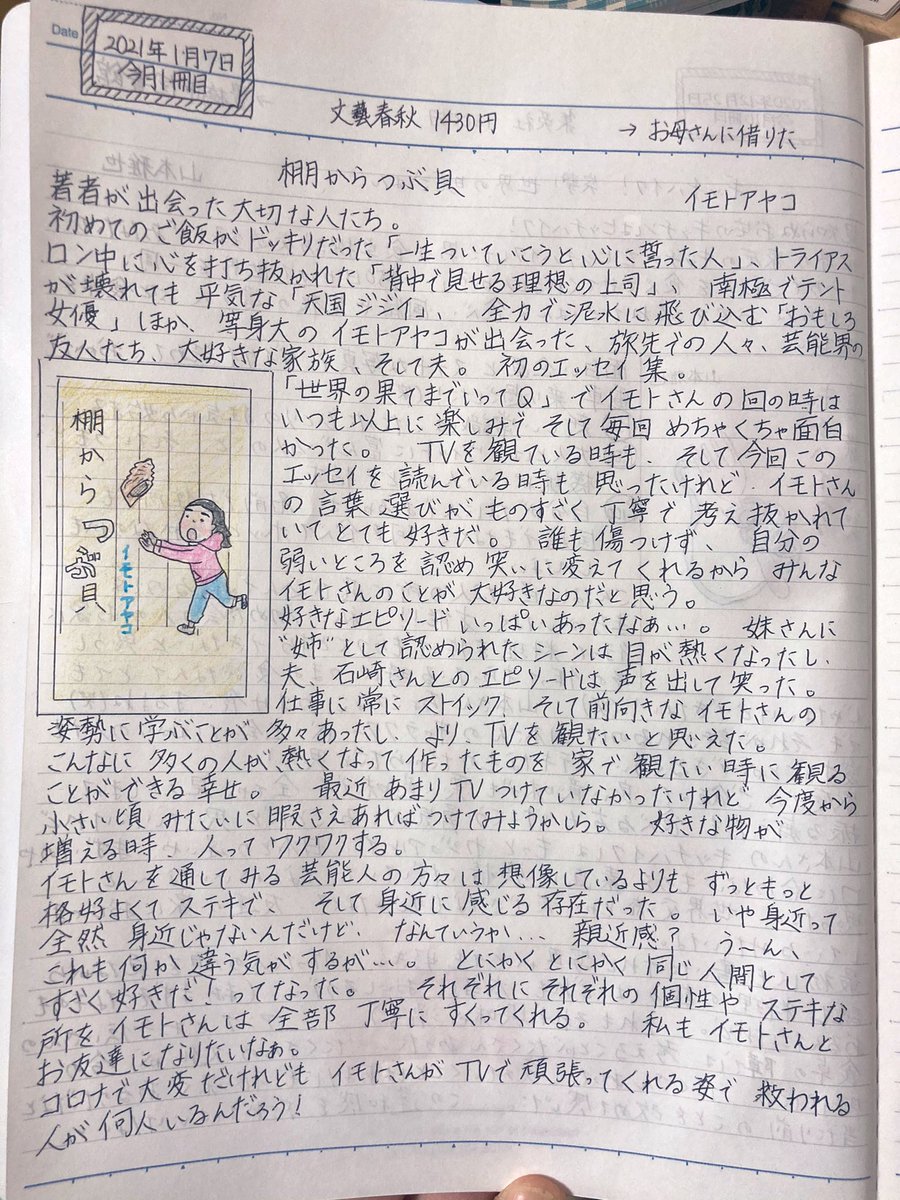 Date
2021年1月7日
今月1冊目
文藝春秋 1430円 → お母さんに借りた
棚からつぶ貝 イモトアヤコ
著者が出会った大切な人たち。
初めてのご飯がドッキリだった「一生ついていこうと心に誓った人」、トライアス
ロン中に心を打ち抜かれた「背中で見せる理想の上司」、南極でテント
が壊れても平気な「天国ジジイ」、全力で泥水に飛び込む「おもしろ
女優」ほか、等身大のイモトアヤコが出会った、旅先での人々、芸能界の
友人たち、大好きな家族、そして夫。初のエッセイ集。
棚からつぶ貝
イモトアヤコ
「世界の果てまでいってQ」でイモトさんの回の時は
いつも以上に楽しみで そして毎回 めちゃくちゃ面白
かった。 TVを観ている時も、そして今回この
エッセイを読んでいる時も思ったけれど、イモトさん
の言葉選びがものすごく丁寧で考え抜かれて
いてとても好きだ。 誰も傷つけず、自分の
弱いところを認め笑いに変えてくれるから みんな
イモトさんのことが大好きなのだと思う。
好きなエピソードいっぱいあったなぁ…。 妹さんに
"姉"として認められたシーンは目が熱くなったし、
夫、石崎さんとのエピソードは声を出して笑った。
仕事に常にストイック、そして前向きなイモトさんの
姿勢に学ぶことが多々あったし、より、TVを観たいと思えた。
こんなに多くの人が熱くなって作ったものを家で観たい時に観る
ことができる幸せ。 最近あまりTVつけていなかったけれど 今度から
小さい頃みたいに暇さえあればつけてみようかしら。 好きな物が
増える時、人ってワクワクする。
イモトさんを通してみる芸能人の方々は想像しているよりも ずっともっと
格好よくてステキで、 そして身近に感じる存在だった。いや身近って
全然身近じゃないんだけど、なんていうか… 親近感? う~ん、
これも何か違う気がするが…。 とにかくとにかく同じ人間として
すごく好きだ!ってなった。 それぞれにそれぞれの個性やステキな
所をイモトさんは全部丁寧にすくってくれる。 私もイモトさんと
お友達になりたいなぁ。
コロナで大変だけれどもイモトさんがTVで頑張ってくれる姿で救われる
人が何人いるんだろう!